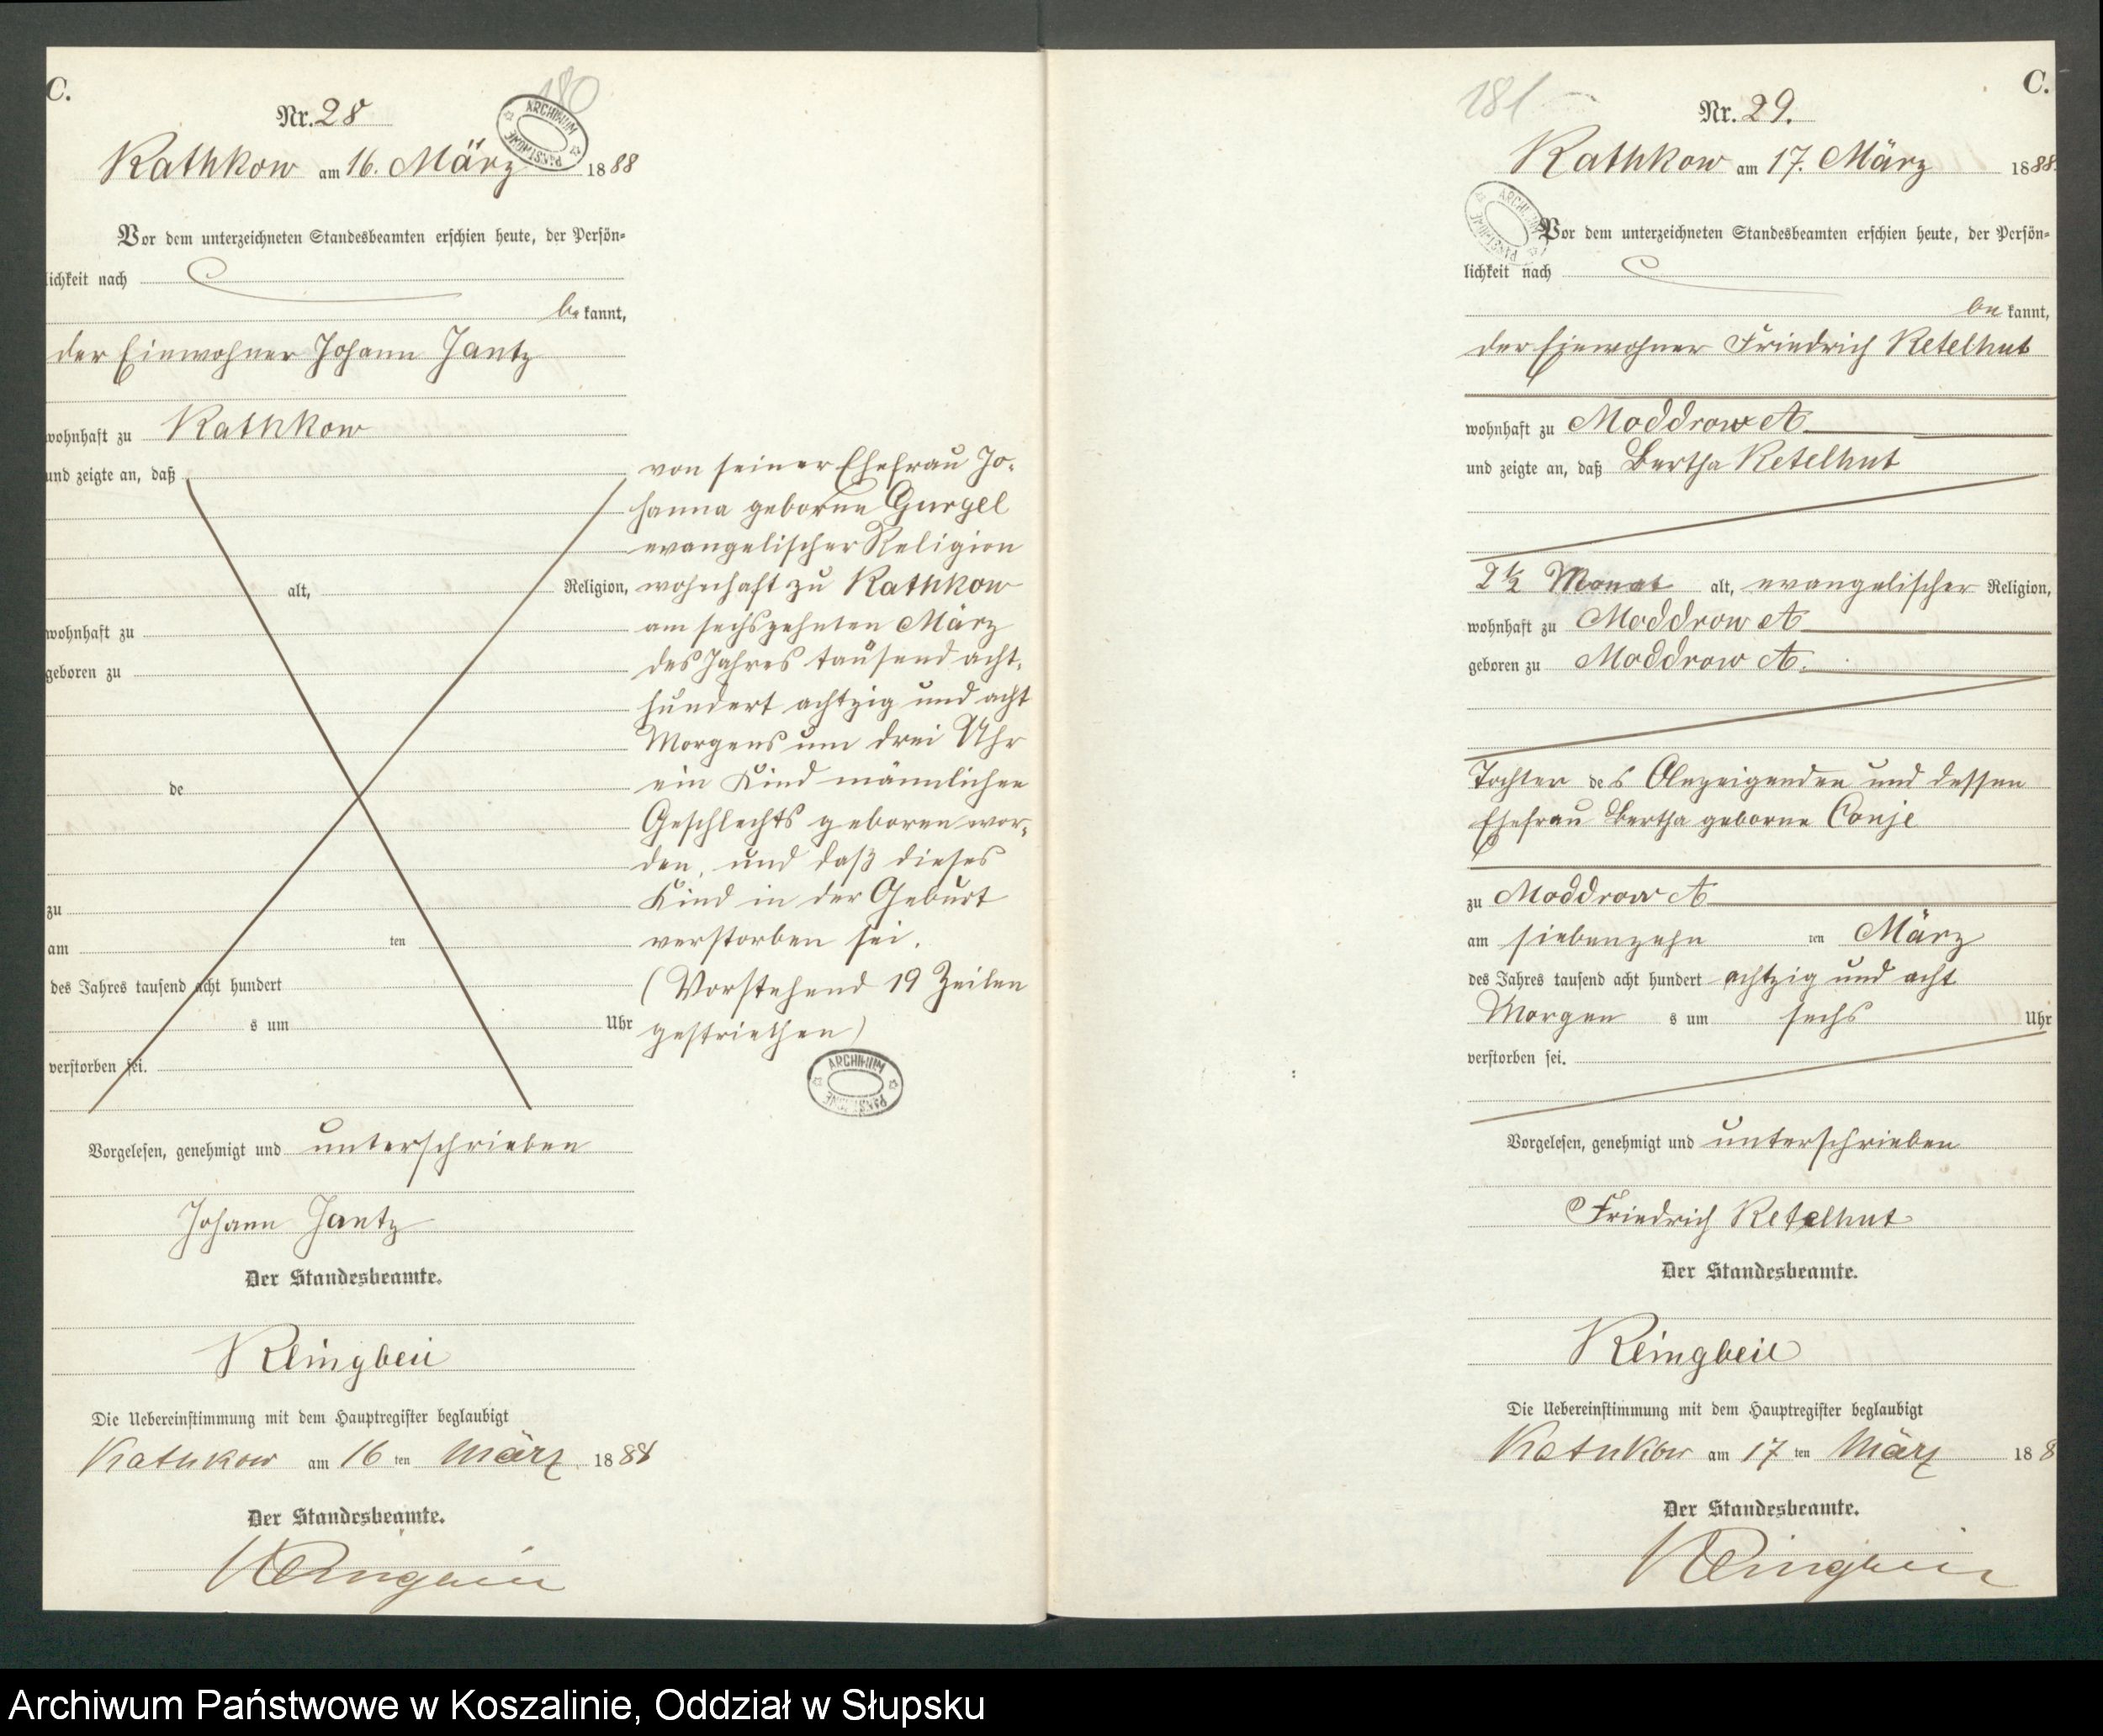 C.
180
Nr. 28
ARCHIWUM PAŃSTWOWE
Rathkow am 16. März 1888
Vor dem unterzeichneten Standesbeamten erschien heute, der Persön-
lichkeit nach
be kannt,
der Einwohner Johann Jantz
wohnhaft zu Rathkow
und zeigte an, daß
alt, Religion,
wohnhaft zu
geboren zu
de
zu
am ten
des Jahres tausend acht hundert
s um Uhr
verstorben sei.
von seiner Ehefrau Jo-
hanna geborne Gurgel
evangelischer Religion
wohnhaft zu Rathkow
am sechszehnten März
des Jahres tausend acht-
hundert achtzig und acht
Morgens um drei Uhr
ein Kind männlichen
Geschlechts geboren wor-
den, und daß dieses
Kind in der Geburt
verstorben sei.
(Vorstehend 19 Zeilen
gestrichen)
ARCHIWUM PAŃSTWOWE
Vorgelesen, genehmigt und unterschrieben
Johann Jantz
Der Standesbeamte.
Klingbeil
Die Uebereinstimmung mit dem Hauptregister beglaubigt
Rathkow am 16 ten März 1888
Der Standesbeamte.
Klingbeil
C.
181
Nr. 29.
Rathkow am 17. März 1888.
ARCHIWUM PAŃSTWOWE
Vor dem unterzeichneten Standesbeamten erschien heute, der Persön-
lichkeit nach
be kannt,
der Einwohner Friedrich Retelhut
wohnhaft zu Moddrow A
und zeigte an, daß Bertha Retelhut
2 1/2 Monat alt, evangelischer Religion,
wohnhaft zu Moddrow A
geboren zu Moddrow A.
Tochter des Anzeigenden und dessen
Ehefrau Bertha geborne Conje
zu Moddrow A
am siebenzehn ten März
des Jahres tausend acht hundert achtzig und acht
Morgen s um sechs Uhr
verstorben sei.
Vorgelesen, genehmigt und unterschrieben
Friedrich Retelhut
Der Standesbeamte.
Klingbeil
Die Uebereinstimmung mit dem Hauptregister beglaubigt
Rathkow am 17 ten März 188
Der Standesbeamte.
Klingbeil
Archiwum Państwowe w Koszalinie, Oddział w Słupsku